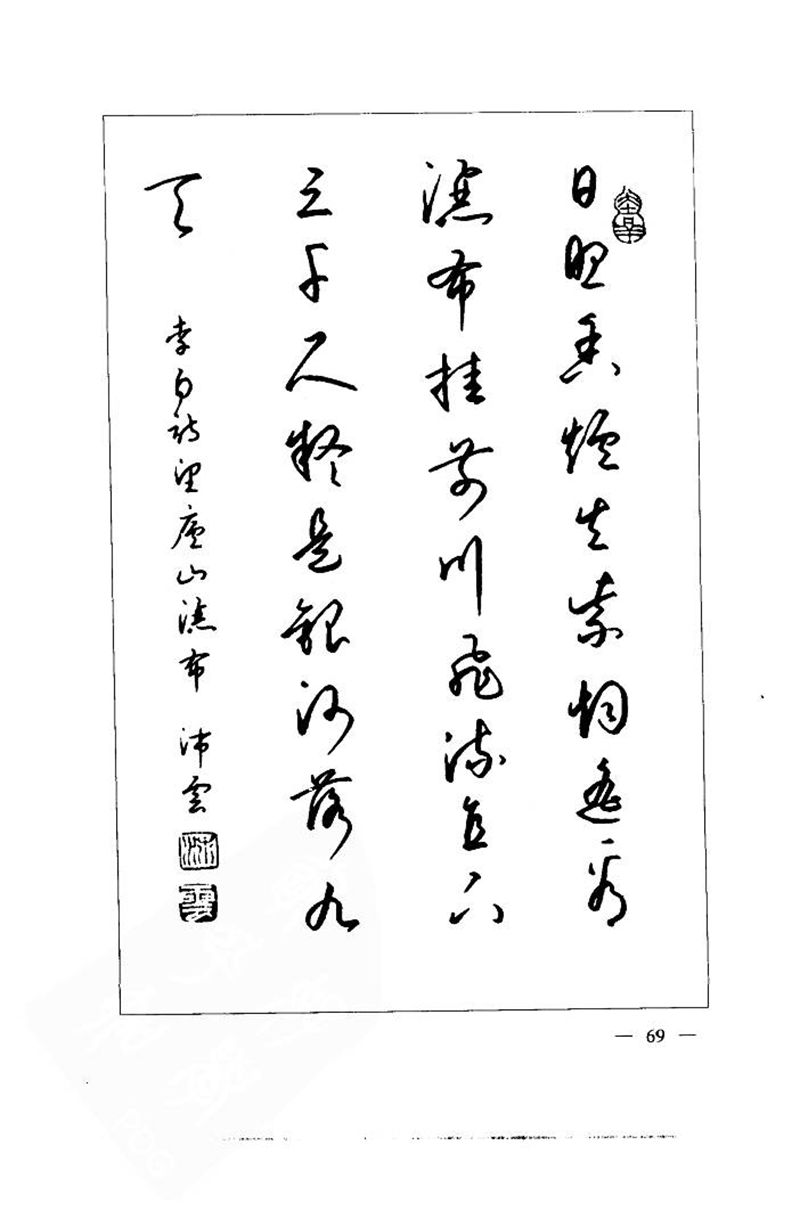 日照香炉生紫烟遥看
瀑布挂前川飞流直下
三千尺疑是银河落九
天
李白诗望庐山瀑布 沛雲
沛
雲
— 69 —